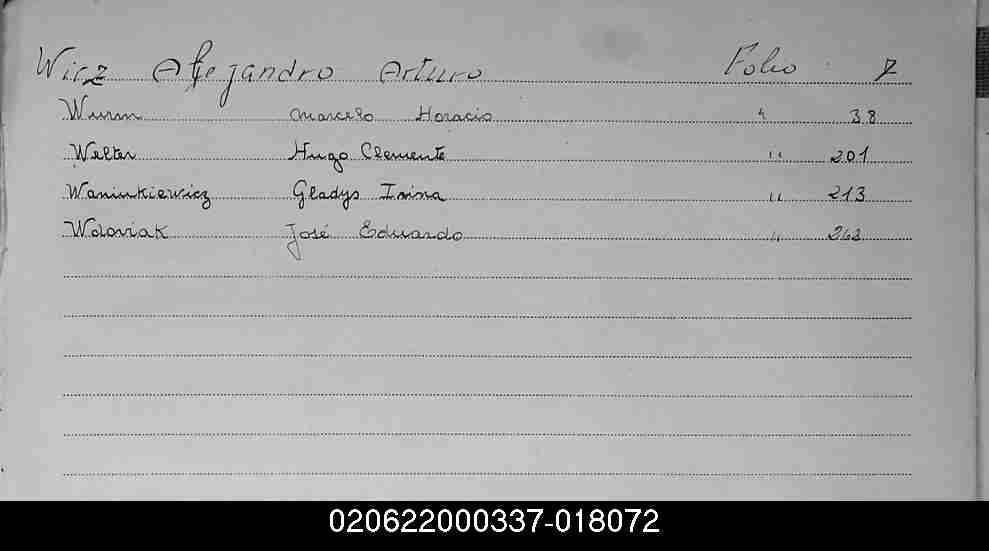 Wirz Alejandro Arturo Folio 7
Wurm Marcelo Horacio " 38
Welter Hugo Clemente " 201
Waniukiewicz Gladys Irina " 213
Woloviak José Eduardo " 263
020622000337-018072